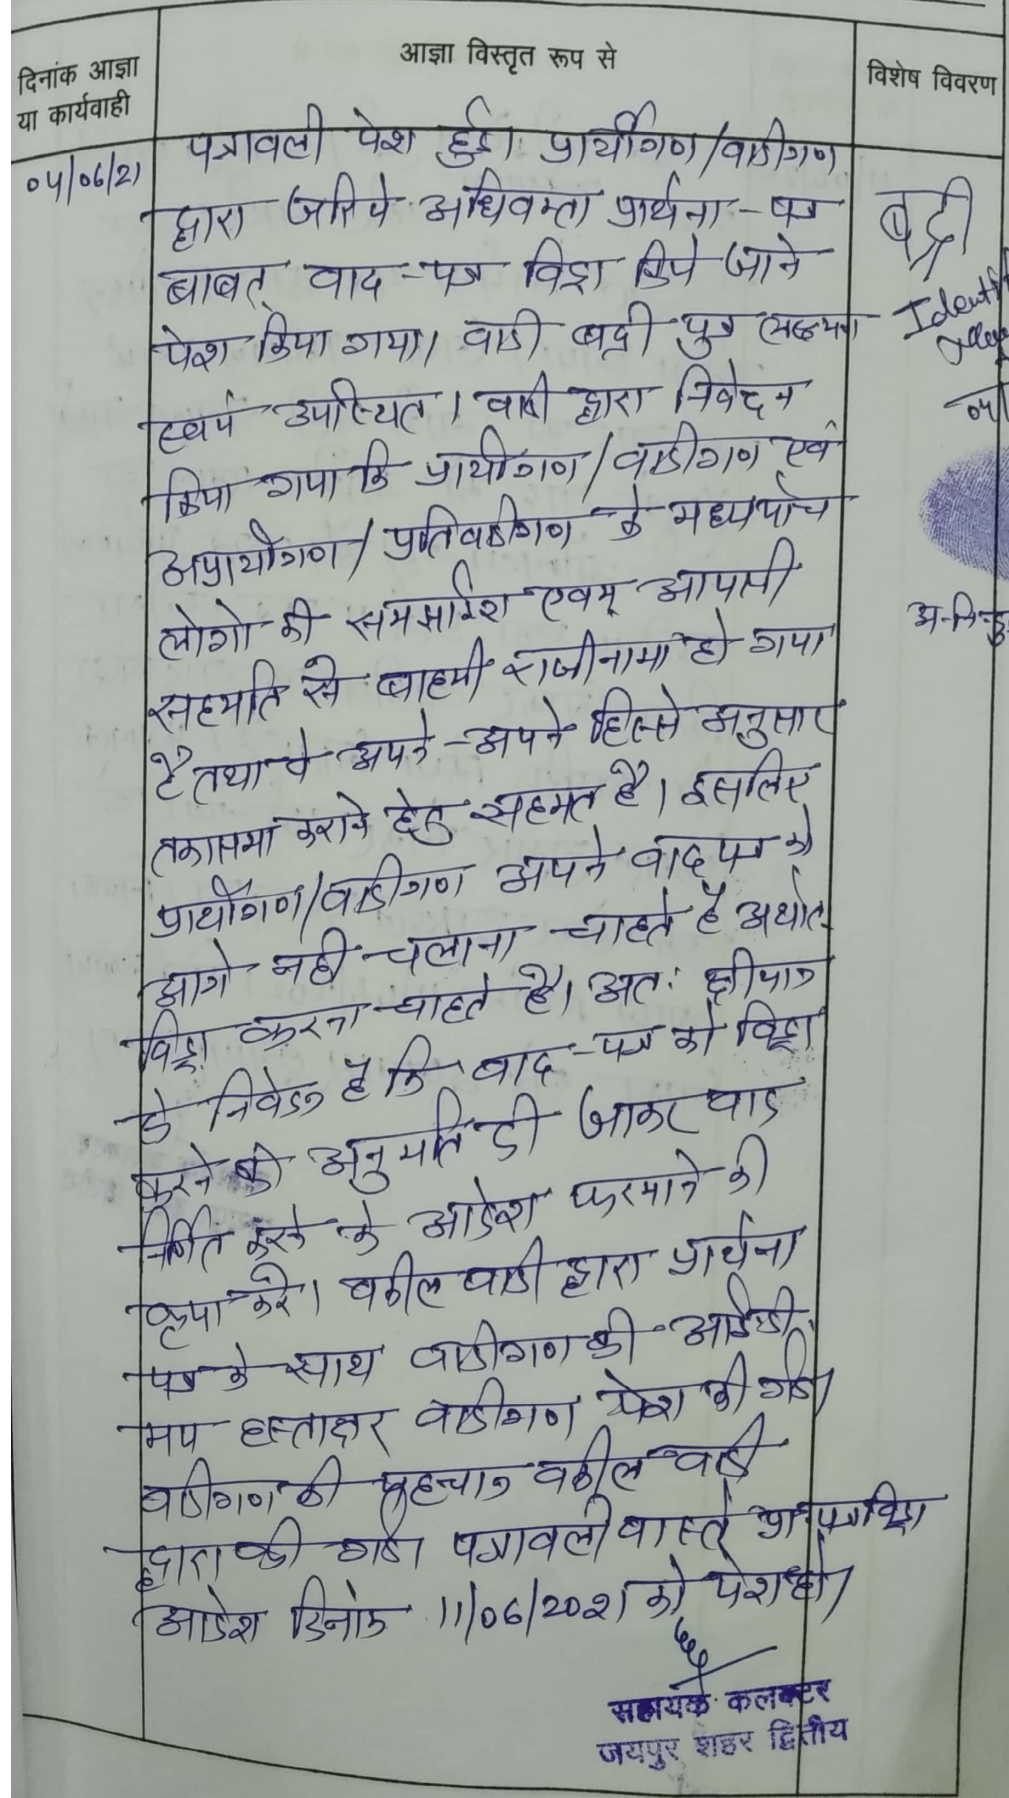 दिनांक आज्ञा
या कार्यवाही
आज्ञा विस्तृत रूप से
विशेष विवरण
04/06/21
पत्रावली पेश हुई। प्रार्थीगण/वादीगण
द्वारा जरिये अधिवक्ता प्रार्थना-पत्र
बाबत् वाद-पत्र विड्रा किये जाने
पेश किया गया। वादी बद्री पुत्र
स्वयं उपस्थित। वादी द्वारा निवेदन
किया गया कि प्रार्थीगण/वादीगण एवं
अप्रार्थीगण/प्रतिवादीगण के मध्य पांच
लोगो की समझाईश एवम् आपसी
सहमति से बाहमी राजीनामा हो गया
है तथा वे अपने-अपने हिस्से अनुसार
तकासमा कराने हेतु सहमत है। इसलिए
प्रार्थीगण/वादीगण अपने वाद पत्र को
आगे नही चलाना चाहते है अर्थात्
विड्रा करना चाहते है। अतः श्रीमान
से निवेदन है कि वाद-पत्र को विड्रा
करने की अनुमति दी जाकर वाद
निर्णित करने के आदेश फरमाने की
कृपा करे। वकील वादी द्वारा प्रार्थना
पत्र के साथ वादीगण की आईडी
मय हस्ताक्षर वादीगण पेश की गई।
वादीगण की पहचान वकील वादी
द्वारा की गई। पत्रावली वास्ते प्रा.पत्र विड्रा
आदेश दिनांक 11/06/2021 को पेश हो।
सहायक कलक्टर
जयपुर शहर द्वितीय
बद्री
Identif
04/